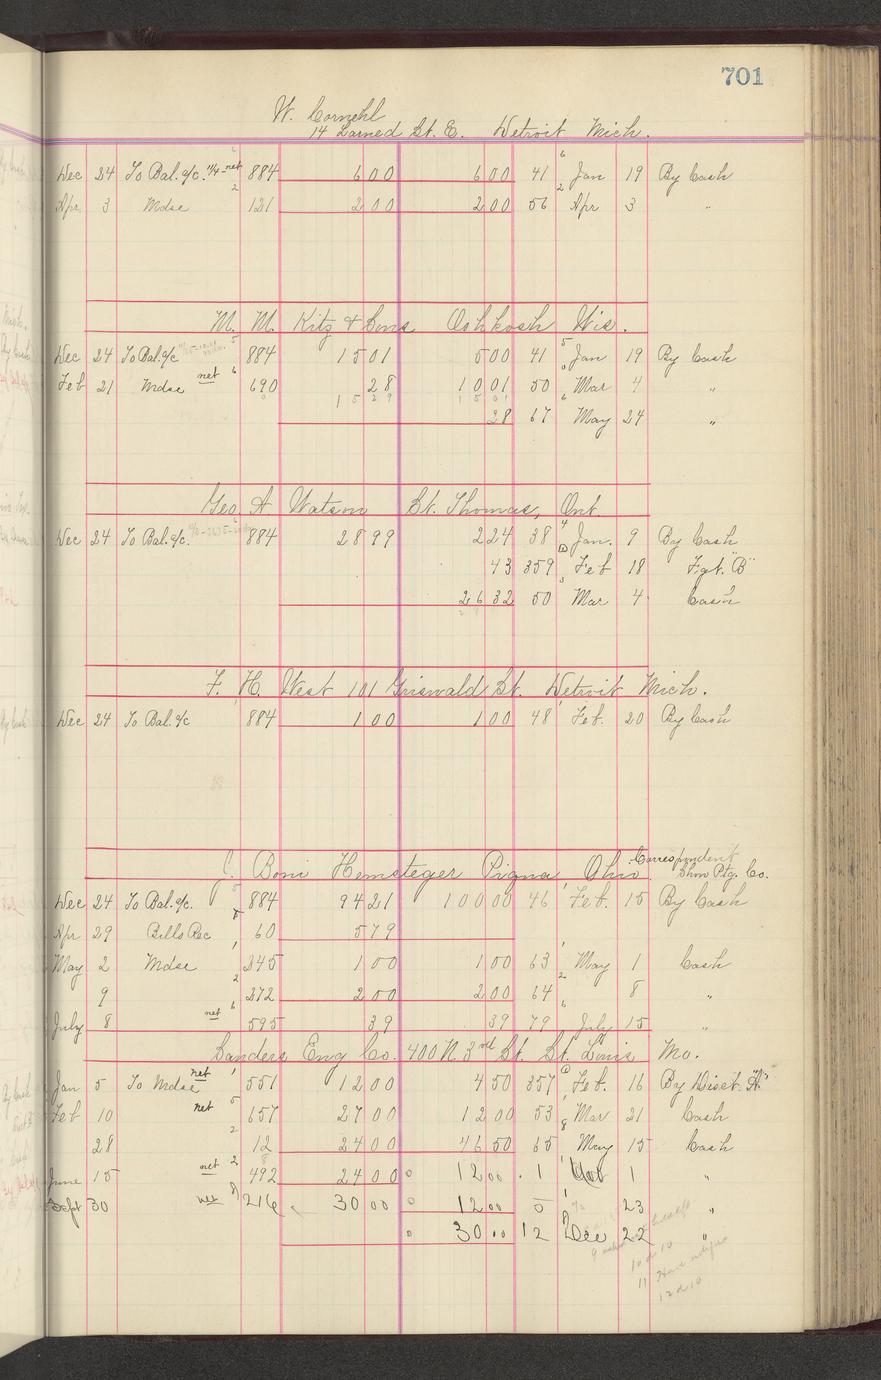 701
W. Cornehl
14 Larned St. E. Detroit Mich.
Dec 24 To Bal. a/c. 11/4-net 884 6 00 6 00 41 6 Jan 19 By Cash
Apr 3 Mdse 2 121 2 00 2 00 56 2 Apr 3 "
M. M. Kitz & Sons Oshkosh Wis.
Dec 24 To Bal. a/c 5 884 15 01 5 00 41 5 Jan 19 By Cash
Feb 21 Mdse net 6 690 28 10 01 50 Mar 4 "
15 29 15 01
28 67 6 May 24 "
Geo. A Watson St. Thomas, Ont.
Dec 24 To Bal. a/c. 884 28 99 2 24 38 4 Jan. 9 By Cash
43 359 Feb 18 Fgt. "B"
26 32 50 3 Mar 4 Cash
F. H. West 101 Griswald St. Detroit Mich.
Dec 24 To Bal. a/c 884 1 00 1 00 48 1 Feb. 20 By Cash
C. Boni Hemsteger Piqua Ohio. Correspondent
Show Ptg. Co.
Dec 24 To Bal. a/c. 5 884 94 21 100 00 46 1 Feb. 15 By Cash
Apr 29 Bills Rec 60 5 79
May 2 Mdse 1 245 1 00 1 00 63 1 May 1 Cash
9 2 272 2 00 2 00 64 2 8 "
July 8 net 6 595 39 39 79 6 July 15 "
Sanders Eng Co. 400 N. 3rd St. St. Louis Mo.
Jan 5 To Mdse net 1 551 12 00 4 50 357 Feb. 16 By Disct. "A"
Feb 10 net 5 657 27 00 12 00 53 1 Mar 21 Cash
28 2 12 24 00 46 50 65 8 May 15 Cash
June 15 net 2 492 24 00 12 00 1 1 Oct 1 "
Sept 30 net 216 30 00 12 00 5 1 23 "
30 00 12 Dec 22 "
10 d 10
11
12 d 10